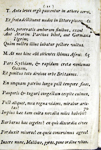 T. Ante leves ergo pascentur in æthere cervi,
Et freta destituent nudos in littore pisces:
Ante, pererratis amborum finibus, exsul
Aut Ararim Parthus bibet, aut Germania Tigrim,
Quàm nostro illius labatur pectore vultus.
M. At nos hinc alii sitientes ibimus Afros:
Pars Scythiam, & rapidum Cretæ veniemus Oaxem,
Et penitus toto divisos orbe Britannos.
En unquam patrios longo post tempore fines,
Pauperis & tugurî congestum cespite culmen,
Post aliquot, mea regna videns, mirabor aristas?
Impius hæc tam culta novalia miles habebit?
Barbarus has segetes? en quò discordia cives
Perduxit miseros! en queis consevimus agros!
Insere nunc, Melibœe, pyros, pone ordine vites.